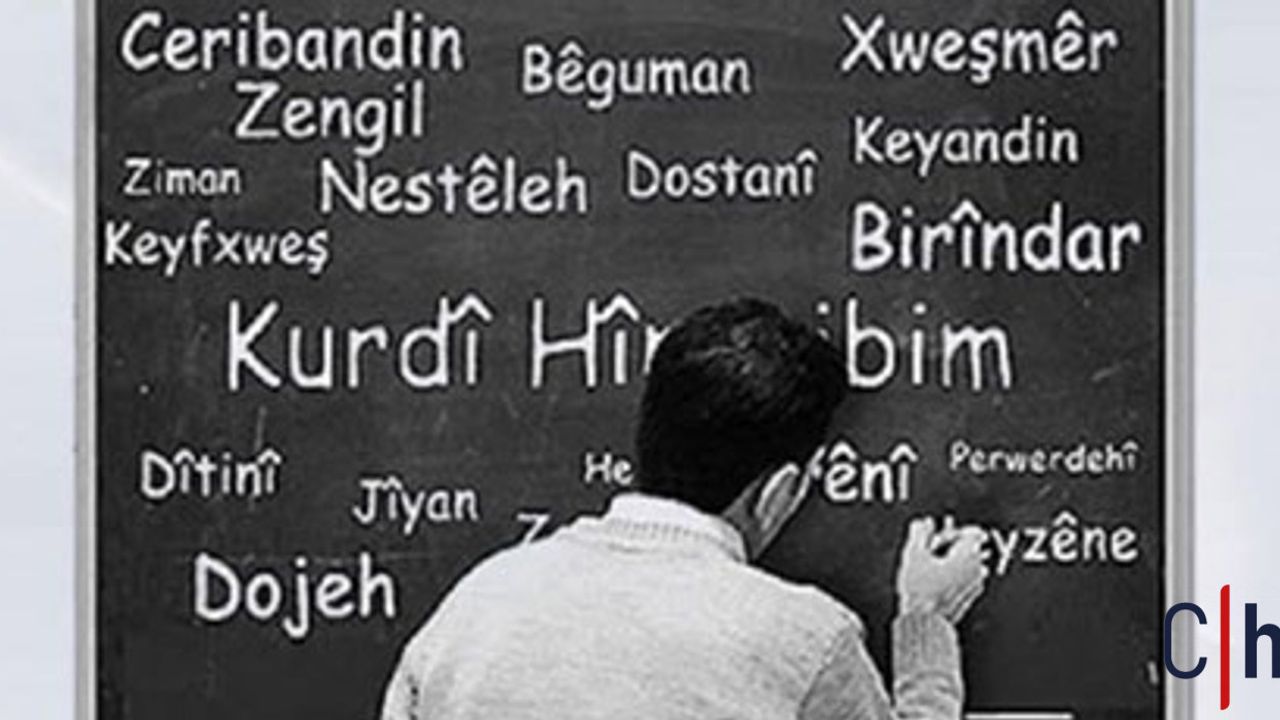 Ceribandin
Bêguman
Xweşmêr
Zengil
Keyandin
Ziman
Nestêleh
Dostanî
Keyfxweş
Birîndar
Kurdî
Dîtinî
Jîyan
Perwerdehî
Dojeh
C|h